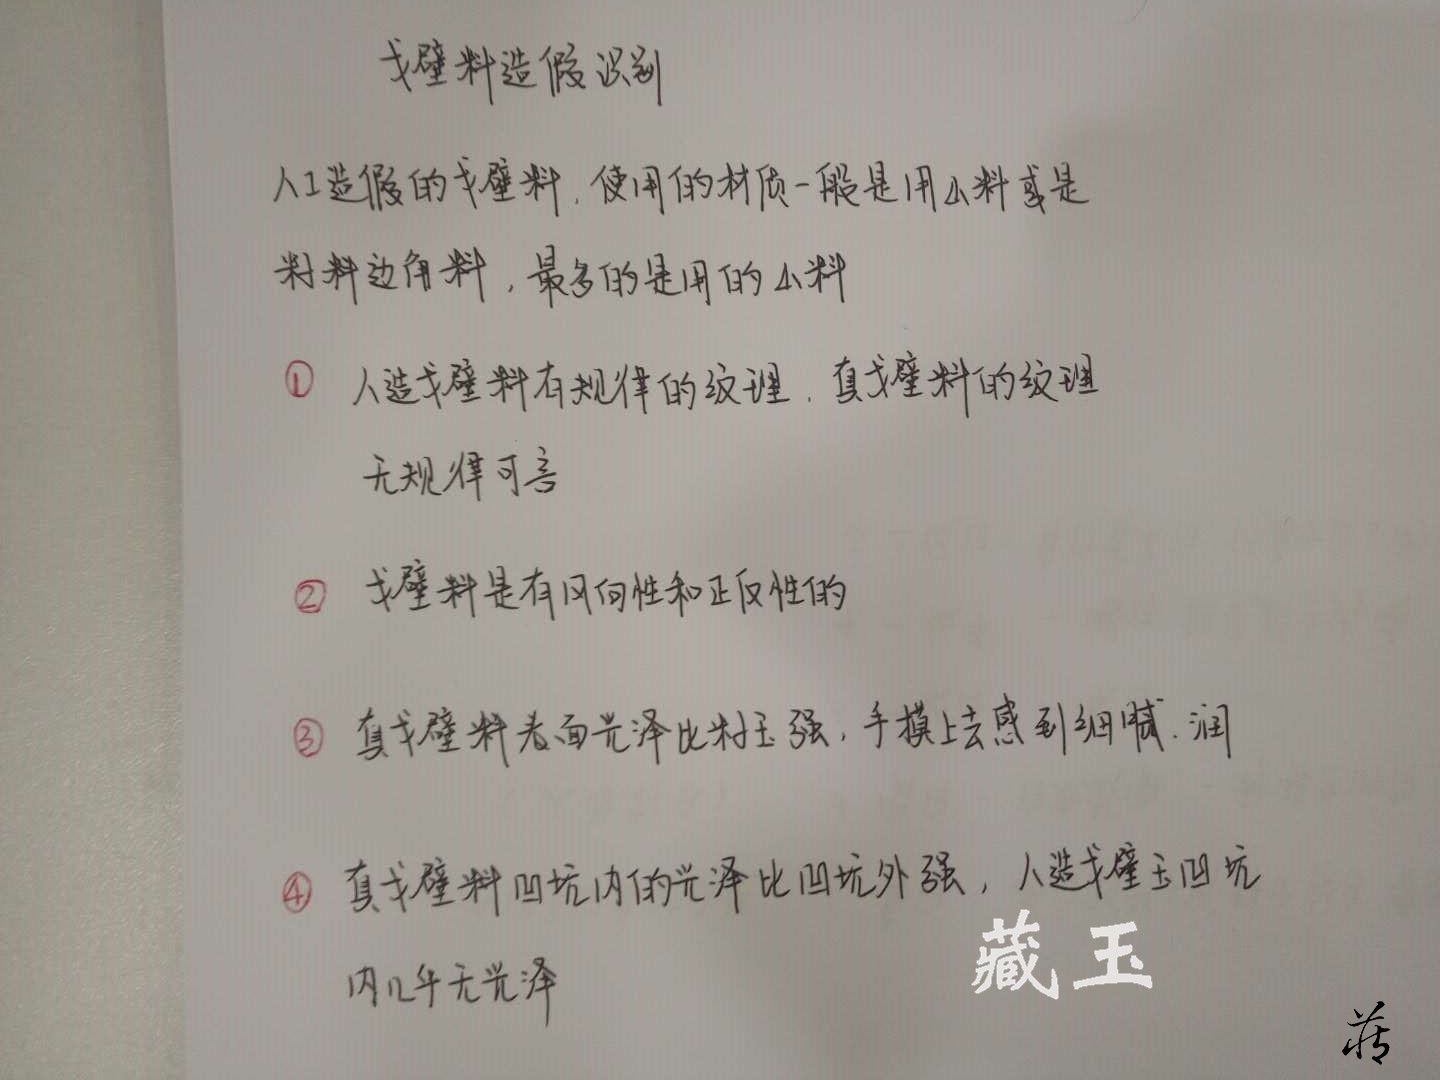 戈壁料造假识别
人工造假的戈壁料，使用的材质一般是用山料或是
籽料边角料，最多的是用的山料
① 人造戈壁料有规律的纹理，真戈壁料的纹理
无规律可言
② 戈壁料是有风向性和正反性的
③ 真戈壁料表面光泽比籽玉强，手摸上去感到细腻、润
④ 真戈壁料凹坑内的光泽比凹坑外强，人造戈壁玉凹坑
内几乎无光泽
藏玉